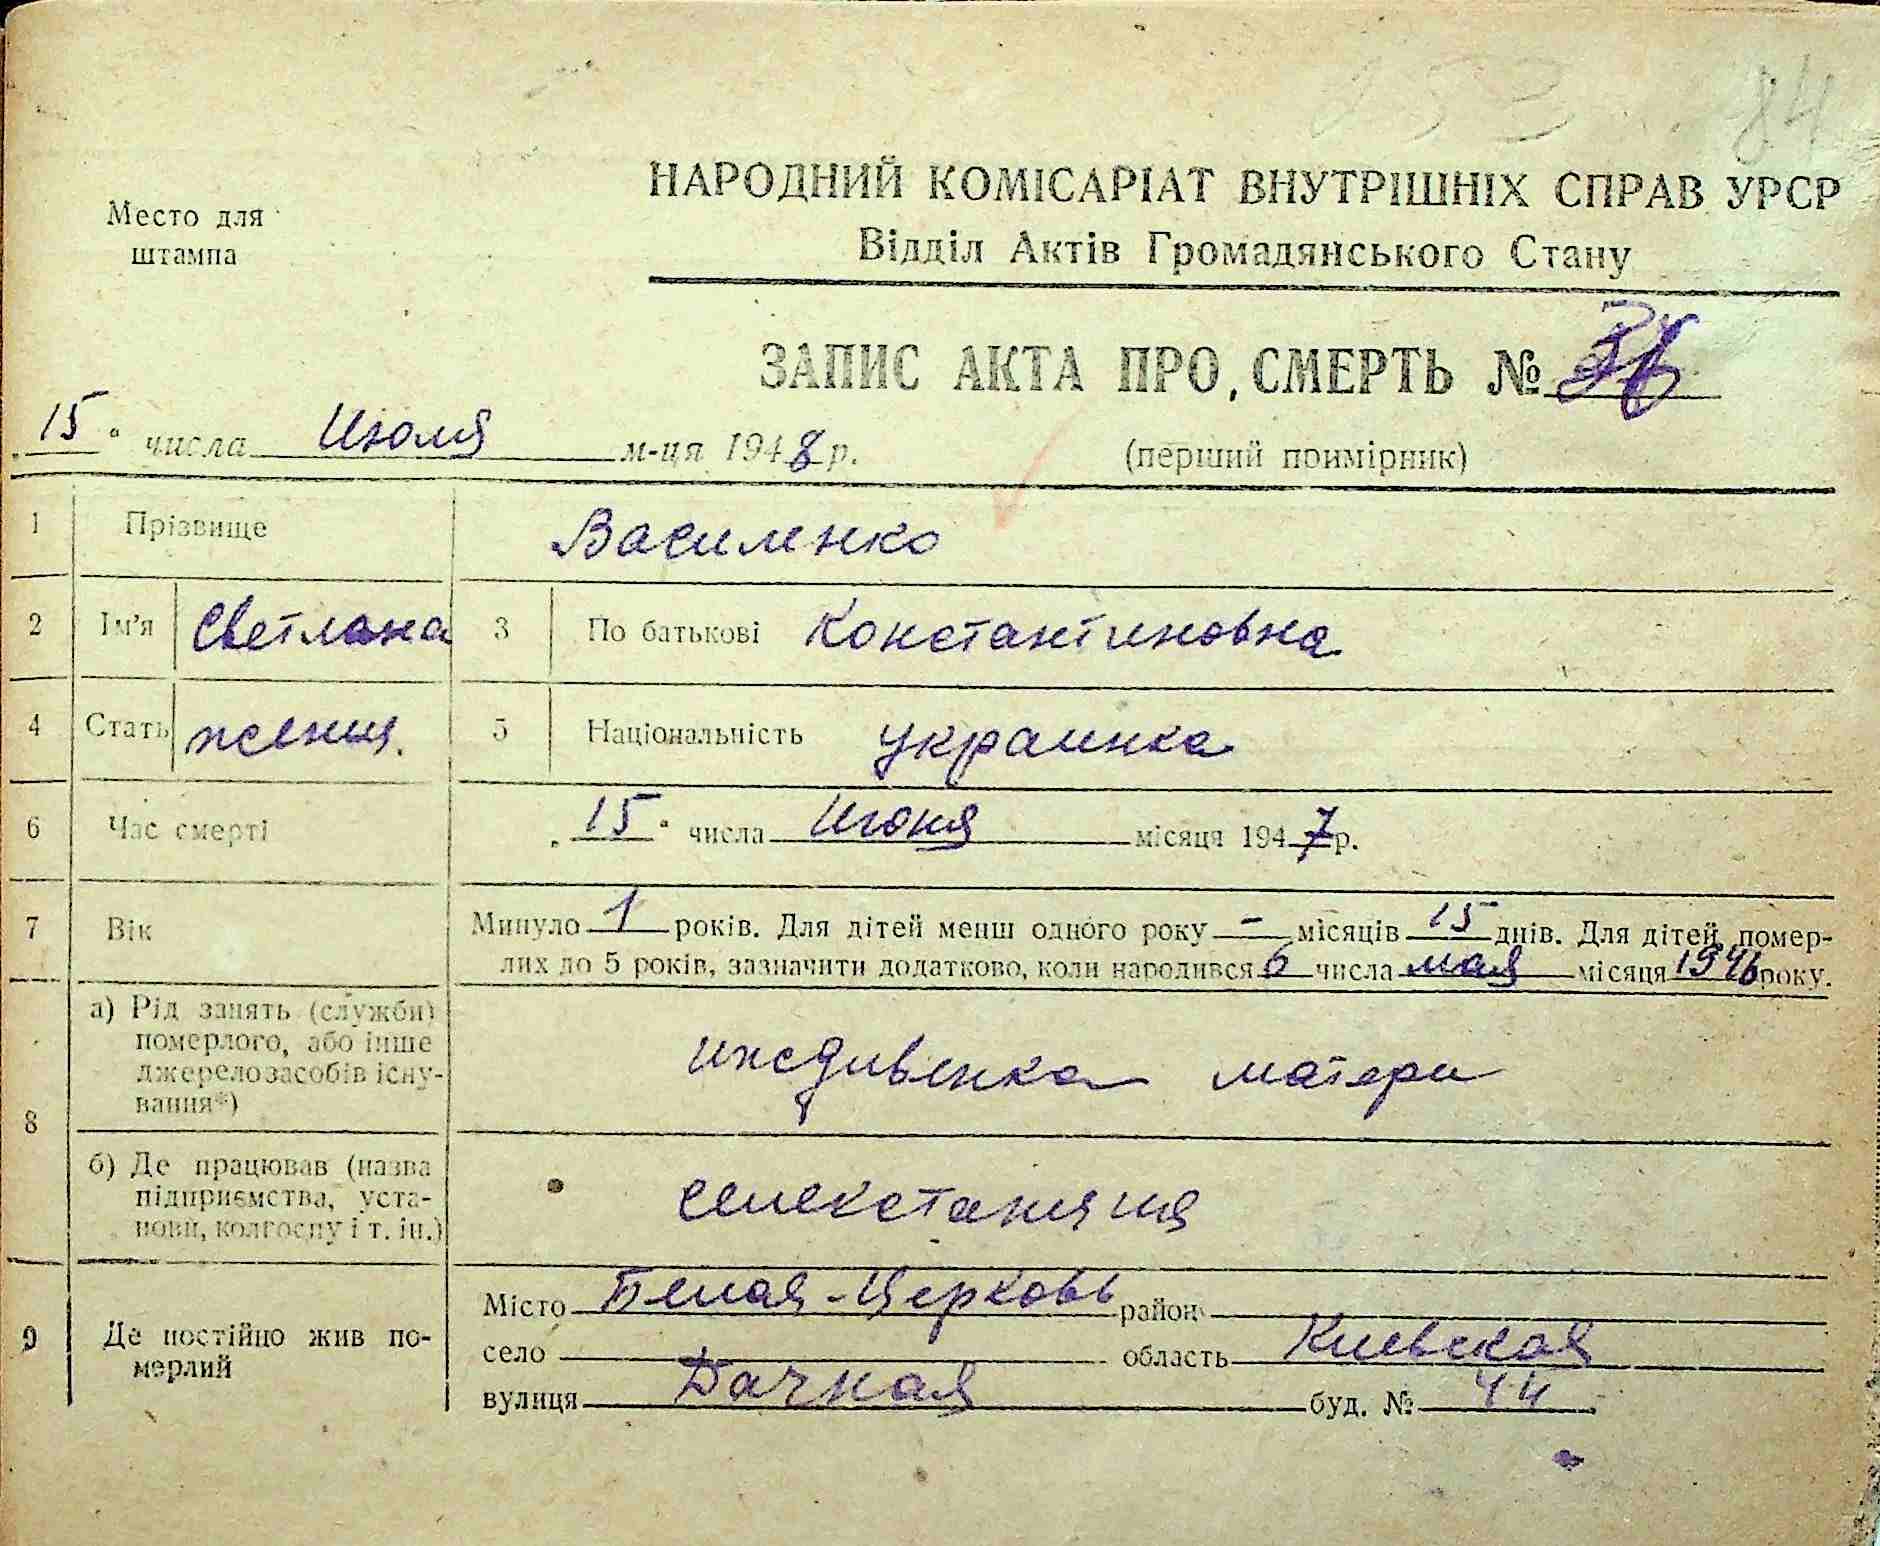 84
НАРОДНИЙ КОМІСАРІАТ ВНУТРІШНІХ СПРАВ УРСР
Место для
штампа
Відділ Актів Громадянського Стану
ЗАПИС АКТА ПРО СМЕРТЬ №
15 числа Июля м-ця 1948 р.
(перший примірник)
1 Прізвище Василенко
2 Ім'я Светлана 3 По батькові Константиновна
4 Стать женщ. 5 Національність украинка
6 Час смерті 15 числа Июня місяця 1947 р.
7 Вік Минуло 1 років. Для дітей менш одного року - місяців 15 днів. Для дітей, помер-
лих до 5 років, зазначити додатково, коли народився 6 числа мая місяця 1946 року.
8 а) Рід занять (служби)
померлого, або інше
джерело засобів існу-
вання*)
иждивенка матери
б) Де працював (назва
підприємства, уста-
нови, колгоспу і т. ін.)
селекстанция
9 Де постійно жив по-
мерлий
Місто Белая-Церковь район
село область Киевская
вулиця Дачная буд. № 44